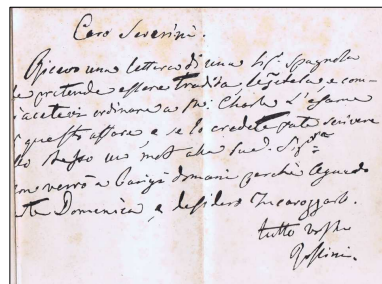 Caro Severini.
Ricevo una lettera di una Sig. Spagnola
pretende essere tradita, leggetela, e com-
piacetevi ordinare a Mr. Charle L'esame
questo affare, e se lo credete fate scrivere
stesso un mot alla Sud. Sig.ra
verrò a Parigi domani perchè Aguado
te Domenica, e desidero
tutto vostro
Rossini.